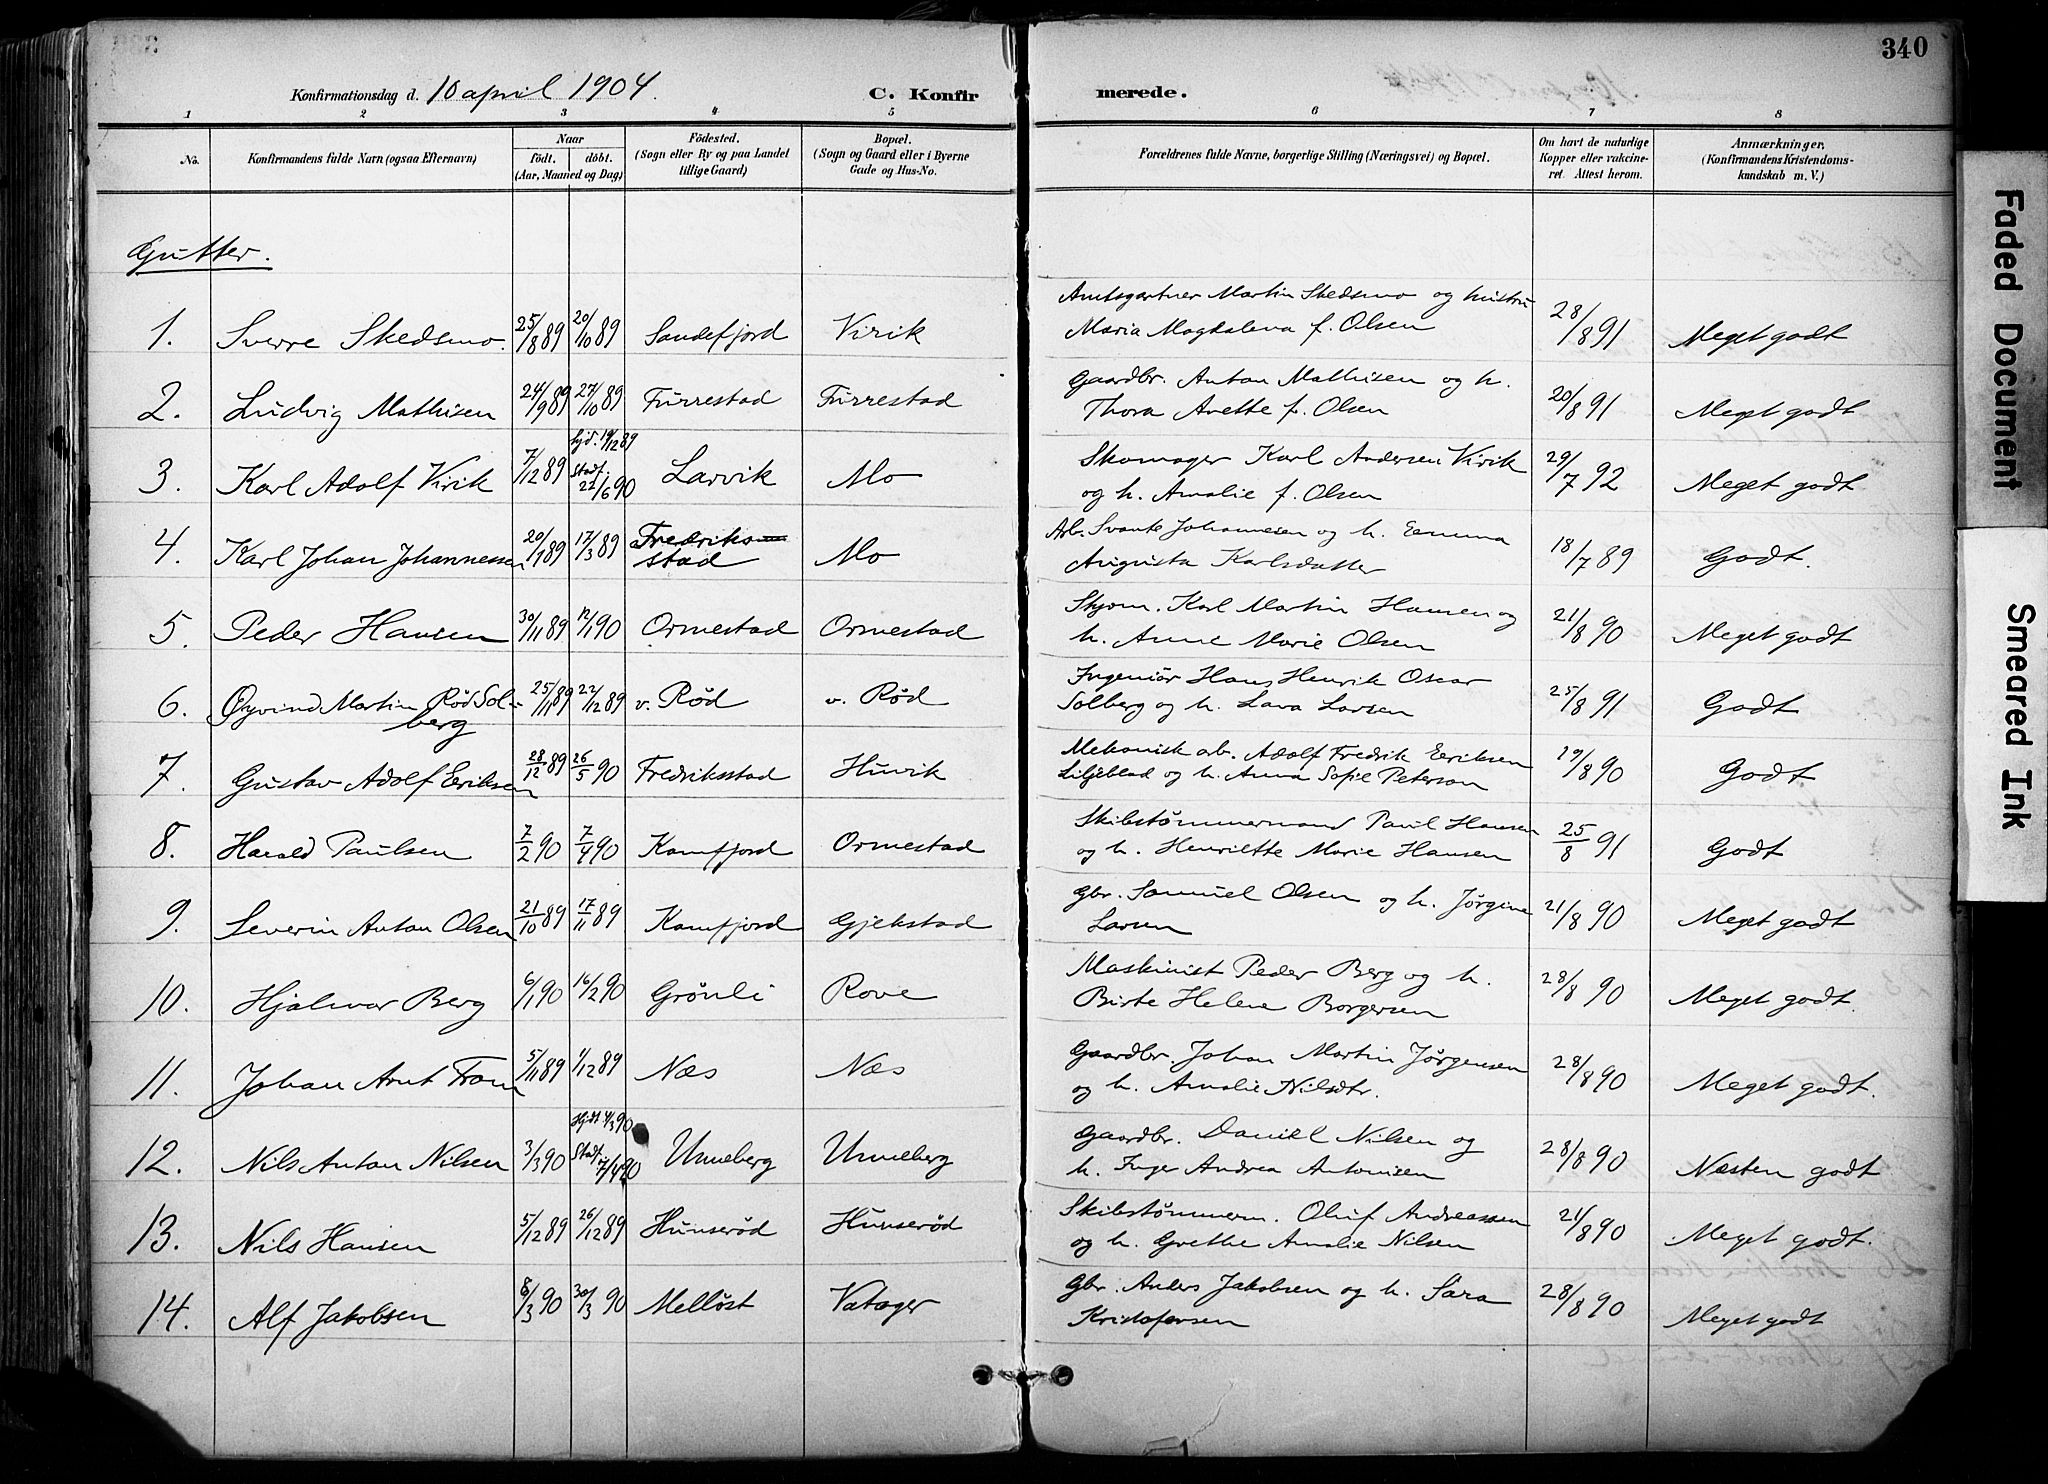 340
Konfirmationsdag d. 10 april 1904. C. Konfirmerede.
1 2 3 4 5 6 7 8
No. Konfirmandens fulde Navn (ogsaa Efternavn) Naar født. døbt. (Aar, Maaned og Dag) Födested. (Sogn eller By og paa Landet tillige Gaard) Bopæl. (Sogn og Gaard eller i Byerne Gade og Hus-No. Forældrenes fulde Navne, borgerlige Stilling (Næringsvei) og Bopæl. Om havt de naturlige Kopper eller vakcineret. Attest herom. Anmærkninger, (Konfirmandens Kristendomskundskab m. V.)
Gutter.
1. Sverre Skedsmo. 25/8 89 20/10 89 Sandefjord Virik Amtsgartner Martin Skedsmo og hustru
Maria Magdalena f. Olsen 28/8 91 Meget godt
2. Ludvig Mathisen 24/9 89 27/10 89 Furrestad Furrestad Gaardbr. Anton Mathisen og h.
Thora Anette f. Olsen 20/8 91 Meget godt
3. Karl Adolf Virik 7/12 89 hjd. 19/12 89 Stadf. 22/6 90 Larvik Mo Skomager Karl Andersen Virik
og h. Amalie f. Olsen 29/7 92 Meget godt
4. Karl Johan Johannessen 20/1 89 17/3 89 Fredriksstad Mo Arb. Svante Johannesen og h. Emma
Augusta Karlsdatter 18/7 89 Godt.
5. Peder Hansen 30/11 89 12/1 90 Ormestad Ormestad Skjom. Karl Martin Hansen og
h. Anne Marie Olsen 21/8 90 Meget godt
6. Øyvind Martin Rød Solberg 25/11 89 22/12 89 v. Rød v. Rød Ingeniør Hans Henrik Oscar
Solberg og h. Lava Larsen 25/8 91 Godt
7. Gustav Adolf Eriksen 28/12 89 26/5 90 Fredriksstad Hunvik Mekanisk arb. Adolf Fredrik Eriksen
Liljeblad og h. Anna Sofie Peterson 19/8 90 Godt
8. Harald Paulsen 7/2 90 7/4 90 Kamfjord Ormestad Skibstømmermand Paul Hansen
og h. Henriette Marie Hansen 25/8 91 Godt
9. Severin Anton Olsen 21/10 89 17/11 89 Kamfjord Gjekstad Gbr. Samuel Olsen og h. Jørgine
Larsen 21/8 90 Meget godt
10. Hjalmar Berg 6/1 90 16/2 90 Grönli Rove Maskinist Peder Berg og h.
Birte Helene Borgersen 28/8 90 Meget godt.
11. Johan Arnt Fram 5/11 89 1/12 89 Næs Næs Gaardbr. Johan Martin Jørgensen
og h. Amalie Nilsdtr. 28/8 90 Meget godt.
12. Nils Anton Nilsen 3/3 90 Hjdt 4/3 90 Stadf. 7/4 90 Unneberg Unneberg Gaardbr. Daniel Nilsen og
h. Inger Andrea Antonisen 28/8 90 Næsten godt
13. Nils Hansen 5/12 89 26/12 89 Hunserød Hunserød Skibstömmerm. Oluf Andreassen
og h. Grethe Amalie Nilsen 21/8 90 Meget godt.
14. Alf Jakobsen 8/3 90 30/3 90 Melløst Vatager Gbr. Anders Jakobsen og h. Sara
Kristofersen 28/8 90 Meget godt
Faded Document
Smeared Ink